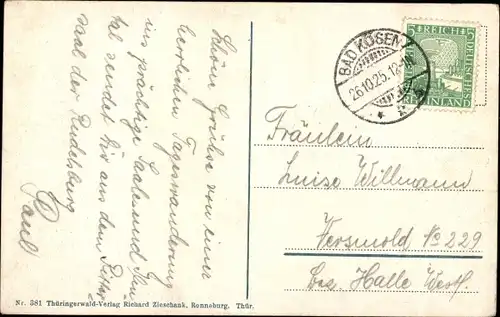 Schöne Grüße von einer
herrlichen Tageswanderung
ins prächtige Saale und Ilm
tal sendet dir aus dem Ritter
saal der Rudelsburg
Paul
BAD KÖSEN
26.10.25. 12-
5 REICH
DEUTSCHES
RHEINLAND
Fräulein
Luise Willmann
Versmold No 229
Bez. Halle Westf.
Nr. 381 Thüringerwald-Verlag Richard Zieschank, Ronneburg. Thür.